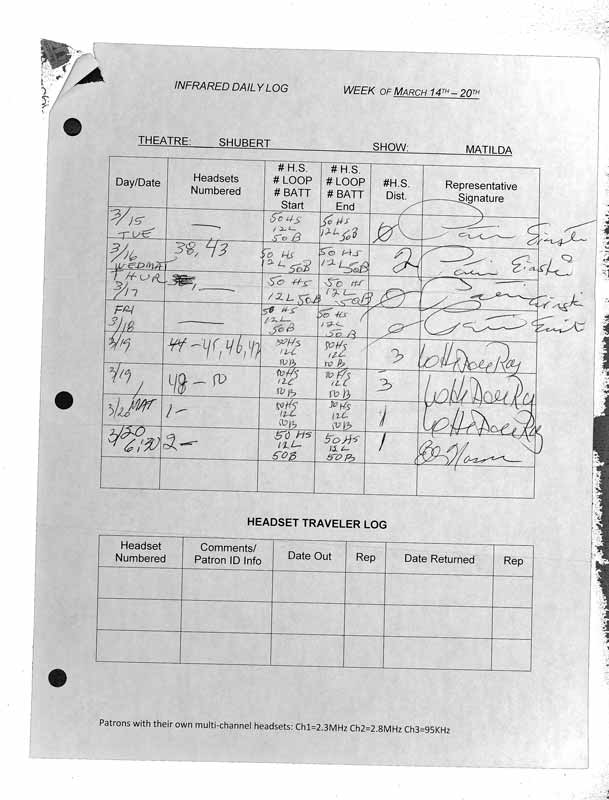 INFRARED DAILY LOG WEEK OF MARCH 14TH – 20TH
THEATRE: SHUBERT SHOW: MATILDA
Day/Date Headsets Numbered # H.S. # LOOP # BATT Start # H.S. # LOOP # BATT End #H.S. Dist. Representative Signature
3/15 TUE — 50 HS 12L 50B 50 HS 12L 50B 0 Einstein
3/16 WED MAT 38, 43 50 HS 12L 50B 50 HS 12L 50B 2 Einstein
THUR 3/17 — 50 HS 12L 50B 50 HS 12L 50B 0
FRI 3/18 — 50 HS 12L 50B 50 HS 12L 50B 0
3/19 - 45, 46, 47 50HS 12L 50B 50HS 12L 50B 3
3/19 48 – 50 50HS 12L 50B 50 HS 12L 50B 3
3/20 MAT 1 – 50HS 12L 50B 50HS 12L 50B 1
3/20 6:30 2 – 50 HS 12L 50B 50HS 12L 50B 1
HEADSET TRAVELER LOG
Headset Numbered Comments/ Patron ID Info Date Out Rep Date Returned Rep
Patrons with their own multi-channel headsets: Ch1=2.3MHz Ch2=2.8MHz Ch3=95KHz